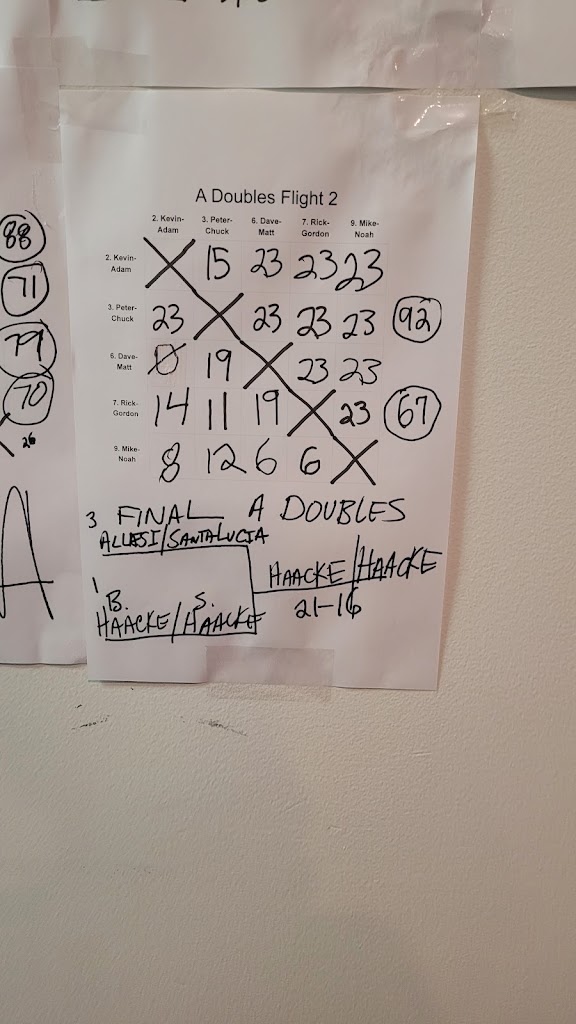 88
71
79
70
26
A
A Doubles Flight 2
2. Kevin- 3. Peter- 6. Dave- 7. Rick- 9. Mike-
Adam Chuck Matt Gordon Noah
2. Kevin-
Adam X 15 23 23 23
3. Peter-
Chuck 23 X 23 23 23 92
6. Dave-
Matt 0 19 X 23 23
7. Rick-
Gordon 14 11 19 X 23 67
9. Mike-
Noah 8 12 6 6 X
3 FINAL A DOUBLES
ALLESI/SANTALUCIA
HAACKE/HAACKE
21-16
1 B. S.
HAACKE/HAACKE